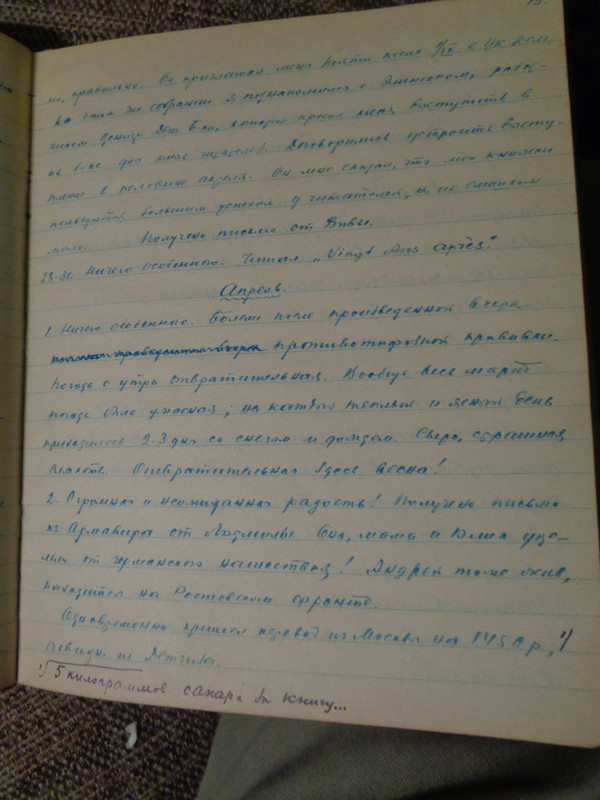 но, правильно. Он приглашал меня зайти после в ЦК
На этом же собрании я познакомился с
ником Дет. Б-ки, который просил меня выступить в
их б-ке для юных читателей. Договорились устроить высту-
пление в половине апреля. Он мне сказал, что мои книжки
пользуются большим успехом у читателей, но их слишком
мало. Получено письмо от
23-31. Ничего особенного. Читал „Vingt Ans après."
Апрель.
1. Ничего особенного. Болею после произведенной вчера
противотифозной прививки.
Погода с утра отвратительная. Вообще весь март
погода была ужасная; на каждый теплый и ясный день
приходилось 2-3 дня со снегом и дождем. Сыро, страшная
Отвратительная здесь весна!
2. Огромная и неожиданная радость! Получено письмо
из Армавира от Людмилы. Она, мама и Юлия уце-
лели от германского нашествия! Андрей тоже жив,
находится на Ростовском фронте.
Одновременно пришел перевод из Москвы на 1450 р., 1)
очевидно из Детгиза.
1) 5 килограммов сахара за книгу...